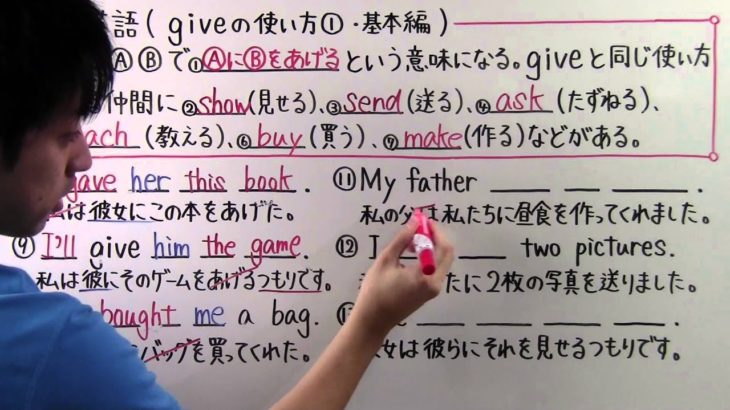 語(giveの使い方①・基本編)
ⒶⒷで①ⒶにⒷをあげるという意味になる。giveと同じ使い方
仲間に②show(見せる)、③send(送る)、④ask(たずねる)、
ach(教える)、⑥buy(買う)、⑦make(作る)などがある。
gave her this book.
は彼女にこの本をあげた。
⑨ I'll give him the game.
私は彼にそのゲームをあげるつもりです。
bought me a bag.
バッグを買ってくれた。
⑪My father ____ ____ ____.
私の父は私たちに昼食を作ってくれました。
⑫ I ____ ____ two pictures.
たに2枚の写真を送りました。
____ ____ ____ ____.
女は彼らにそれを見せるつもりです。